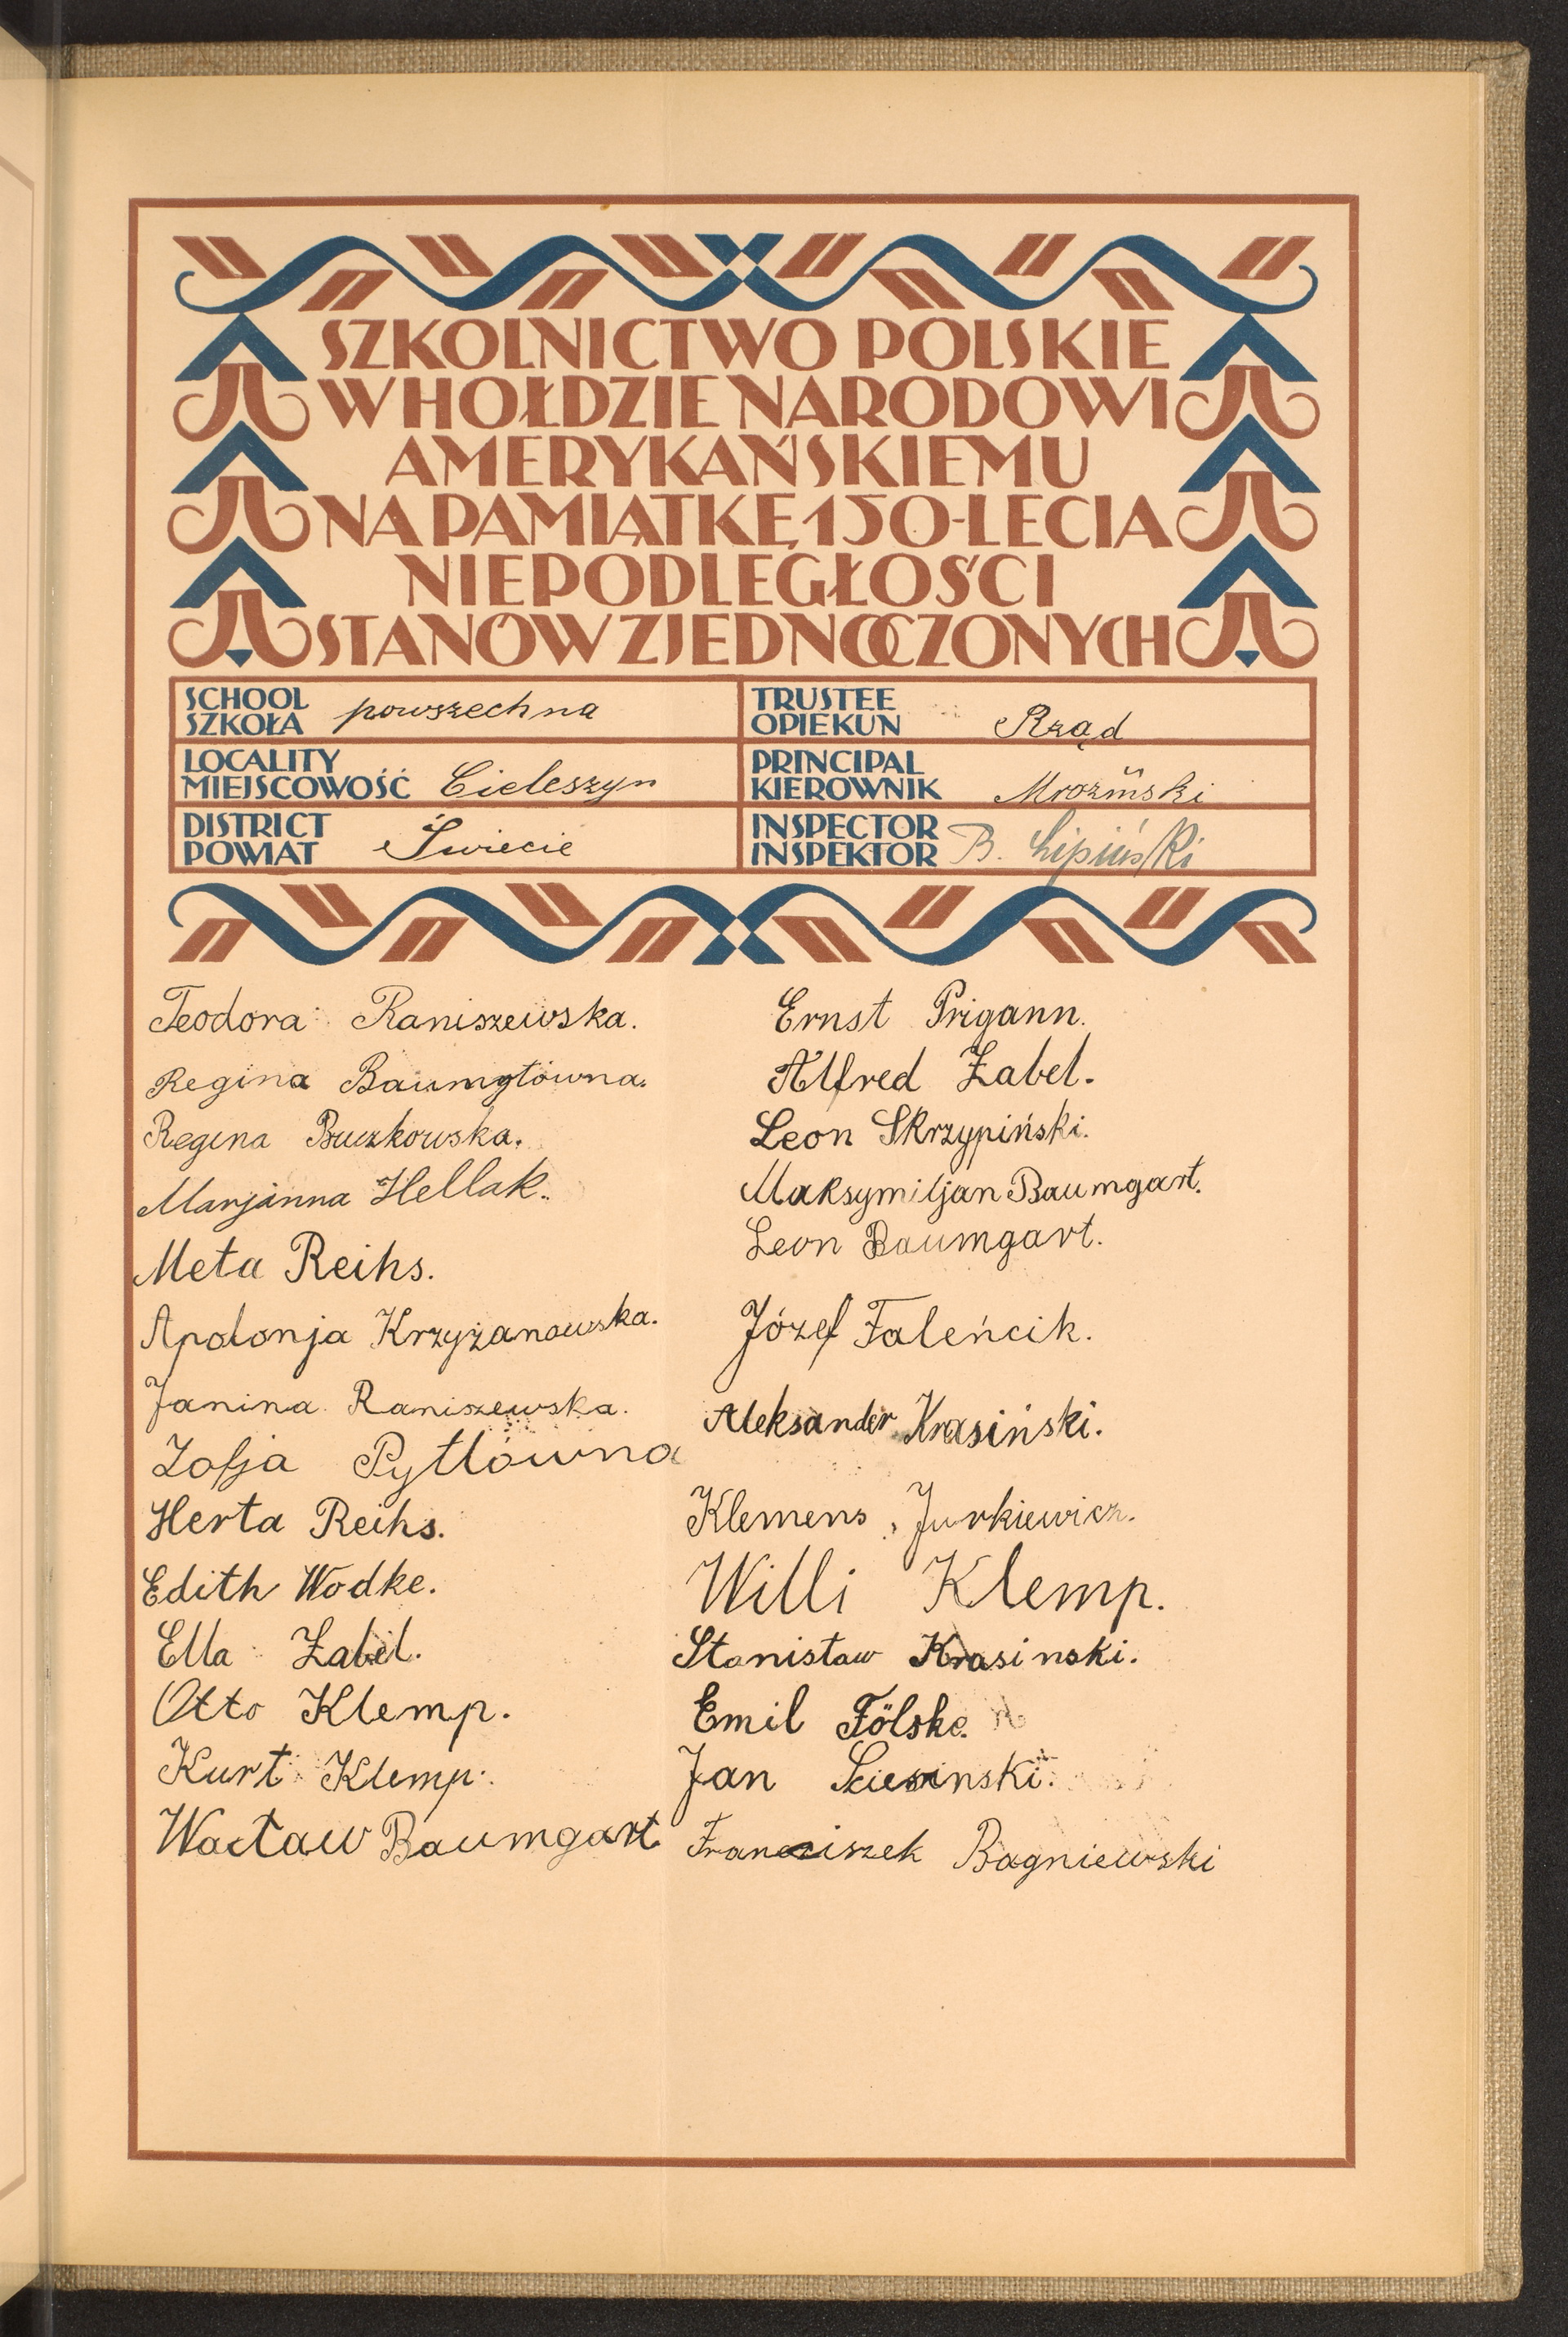 SZKOLNICTWO POLSKIE
W HOŁDZIE NARODOWI
AMERYKAŃSKIEMU
NA PAMIĄTKĘ 150-LECIA
NIEPODLEGŁOŚCI
STANÓW ZJEDNOCZONYCH
SCHOOL
SZKOŁA powszechna
TRUSTEE
OPIEKUN Rząd
LOCALITY
MIEJSCOWOŚĆ Cieleszyn
PRINCIPAL
KIEROWNIK Mroziński
DISTRICT
POWIAT Świecie
INSPECTOR
INSPEKTOR B. Lipiński
Teodora Raniszewska.
Regina Baumgtówna.
Regina Buczkowska.
Marjanna Hellak.
Meta Reihs.
Apolonja Krzyżanowska.
Janina Raniszewska.
Zofja Pytlówna
Herta Reihs.
Edith Wodke.
Ella Zabel.
Otto Klemp.
Kurt Klemp.
Wacław Baumgart
Ernst Prigann.
Alfred Zabel.
Leon Skrzypiński.
Maksymiljan Baumgart.
Leon Baumgart.
Józef Faleńcik.
Aleksander Krasiński.
Klemens Jurkiewicz.
Willi Klemp.
Stanisław Krasinski.
Emil Fölske.
Jan Sciesinski.
Franciszek Bagniewski